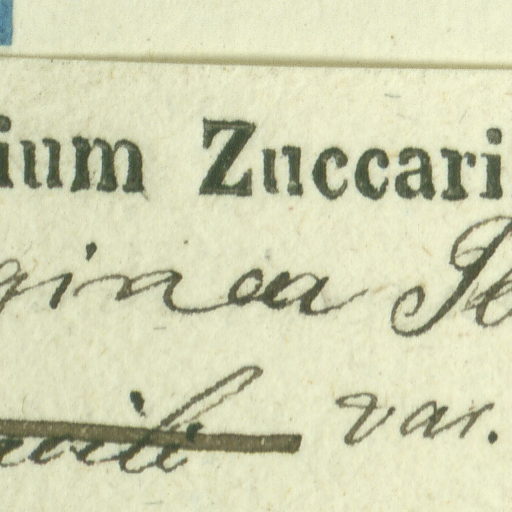 ium Zuccari
ginea
var.